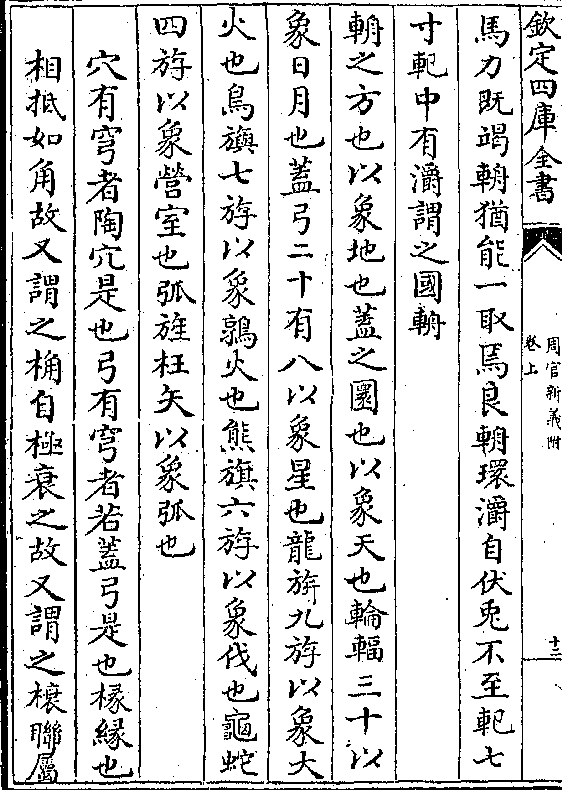 欽定四庫全書
周官新義附
卷上
十三
馬力既竭輈猶能一取焉良輈環灂自伏兎不至軓七
寸軓中有灂謂之國輈
輈之方也以象地也蓋之圜也以象天也輪輻三十以
象日月也蓋弓二十有八以象星也龍旂九斿以象大
火也鳥旟七斿以象鶉火也熊旗六斿以象伐也龜蛇
四斿以象營室也弧旌枉矢以象弧也
穴有穹者陶穴是也弓有穹者若蓋弓是也椽緣也
相抵如角故又謂之桷自極衰之故又謂之榱聯屬